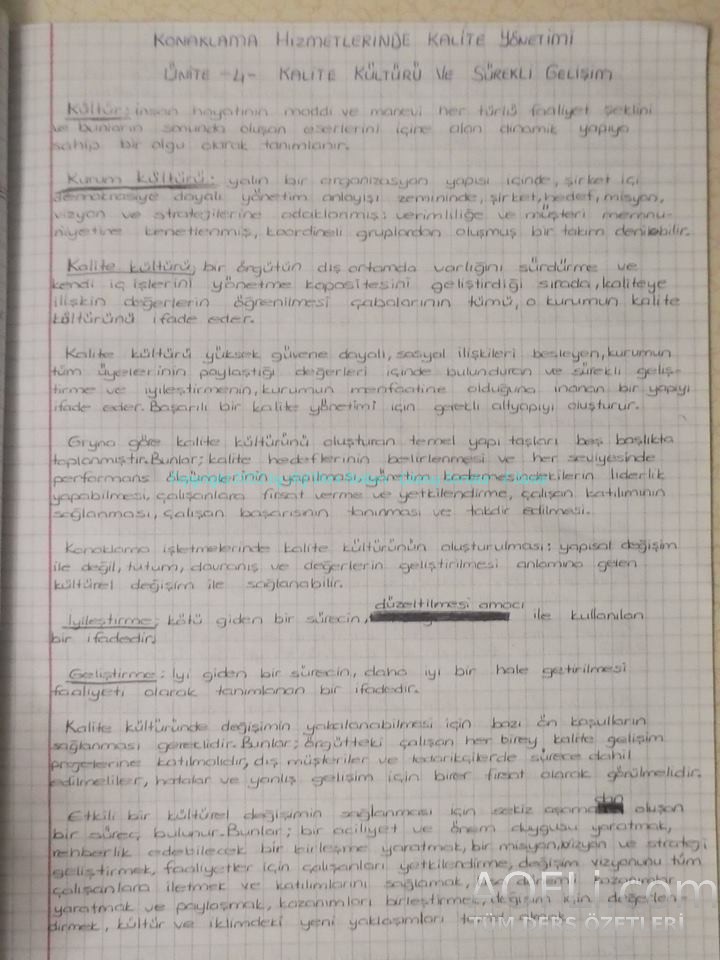 KONAKLAMA HİZMETLERİNDE KALİTE YÖNETİMİ
ÜNİTE -4- KALİTE KÜLTÜRÜ VE SÜREKLİ GELİŞİM
Kültür; insan hayatının maddi ve manevi her türlü faaliyet şeklini
ve bunların sonunda oluşan eserlerini içine alan dinamik yapıya
sahip bir olgu olarak tanımlanır.
Kurum kültürü: yalın bir organizasyon yapısı içinde, şirket içi
demokrasiye dayalı yönetim anlayışı zemininde, şirket, hedef, misyon,
vizyon ve stratejilerine odaklanmış; verimliliğe ve müşteri memnu-
niyetine kenetlenmiş, koordineli gruplardan oluşmuş bir takım denilebilir.
Kalite kültürü; bir örgütün dış ortamda varlığını sürdürme ve
kendi iç işlerini yönetme kapasitesini geliştirdiği sırada, kaliteye
ilişkin değerlerin öğrenilmesi çabalarının tümü, o kurumun kalite
kültürünü ifade eder.
Kalite kültürü yüksek güvene dayalı, sosyal ilişkileri besleyen, kurumun
tüm üyelerinin paylaştığı değerleri içinde bulunduran ve sürekli geliş-
tirme ve iyileştirmenin, kurumun menfaatine olduğuna inanan bir yapıyı
ifade eder. Başarılı bir kalite yönetimi için gerekli altyapıyı oluşturur.
Gryna göre kalite kültürünü oluşturan temel yapı taşları beş başlıkta
toplanmıştır. Bunlar; kalite hedeflerinin belirlenmesi ve her seviyesinde
performans ölçümlerinin yapılması, yönetim kademesindekilerin liderlik
yapabilmesi, çalışanlara fırsat verme ve yetkilendirme, çalışan katılımının
sağlanması, çalışan başarısının tanınması ve takdir edilmesi.
Konaklama işletmelerinde kalite kültürünün oluşturulması; yapısal değişim
ile değil, tutum, davranış ve değerlerin geliştirilmesi anlamına gelen
kültürel değişim ile sağlanabilir.
düzeltilmesi amacı
İyileştirme; kötü giden bir sürecin, ile kullanılan
bir ifadedir.
Geliştirme: İyi giden bir sürecin, daha iyi bir hale getirilmesi
faaliyeti olarak tanımlanan bir ifadedir.
Kalite kültüründe değişimin yakalanabilmesi için bazı ön koşulların
sağlanması gereklidir. Bunlar; örgütteki çalışan her birey kalite gelişim
projelerine katılmalıdır, dış müşteriler ve tedarikçilerde sürece dahil
edilmeliler, hatalar ve yanlış gelişim için birer fırsat olarak görülmelidir.
dan
Etkili bir kültürel değişimin sağlanması için sekiz aşama oluşan
bir süreç bulunur. Bunlar; bir aciliyet ve önem duygusu yaratmak,
rehberlik edebilecek bir birleşme yaratmak, bir misyon, vizyon ve strateji
geliştirmek, faaliyetler için çalışanları yetkilendirme, değişim vizyonunu tüm
çalışanlara iletmek ve katılımlarını sağlamak, kazanımlar
yaratmak ve paylaşmak, kazanımları birleştirmek, değişim için değerlen-
dirmek, kültür ve iklimdeki yeni yaklaşımları
AOFLi.com
TÜM DERS ÖZETLERİ